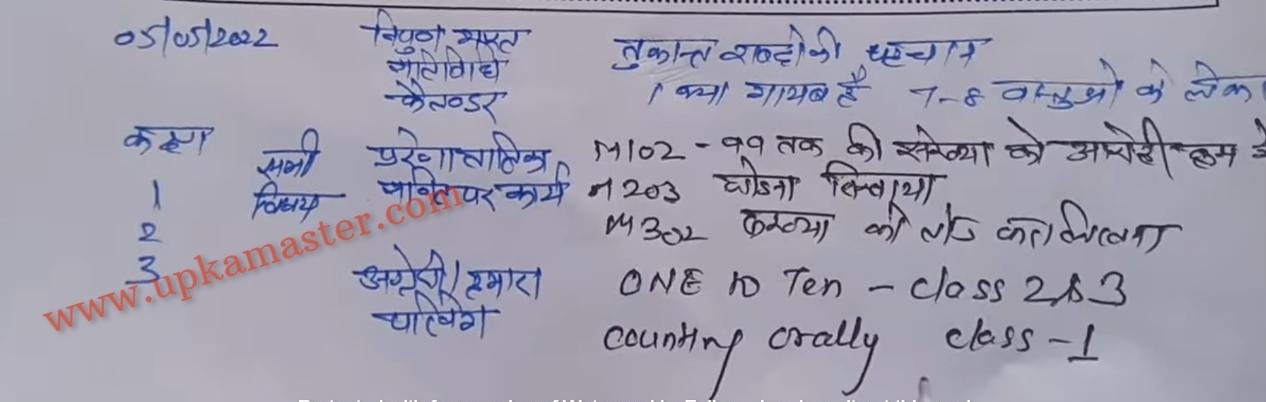 05/05/2022 निपुण भारत तुकान्त शब्दो की पहचान
गतिविधि 1 क्या गायब है 7-8 वस्तुओ को लेकर
कैलण्डर
कक्षा सभी प्रेरणा तालिका M102 - 99 तक की संख्या को आरोही क्रम मे
1 विषय पर कार्य M203 घटाना सिखाया
2 M302 संख्या को तोड़ कर लिखना
3 अंग्रेजी/हमारा ONE to Ten - class 2&3
परिवेश counting orally class -1
www.upkamaster.com